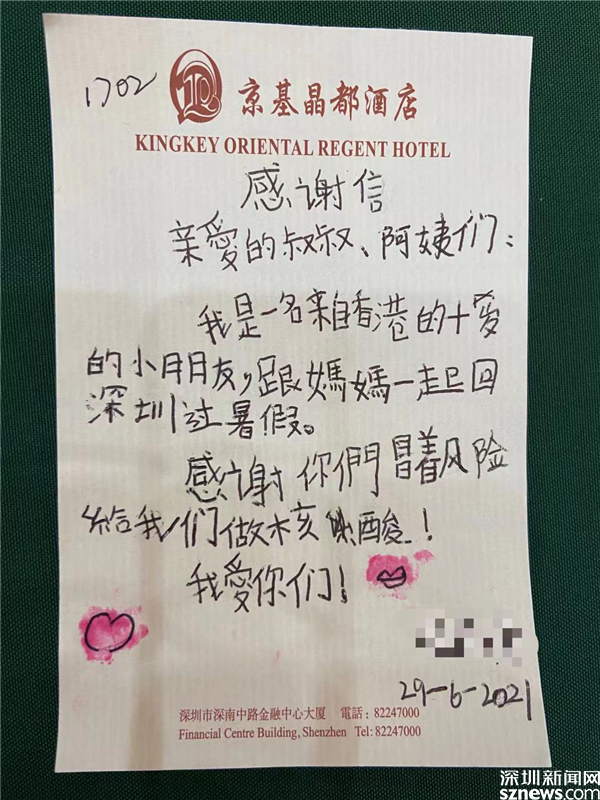 1702
京基晶都酒店
KINGKEY ORIENTAL REGENT HOTEL
感谢信
亲愛的叔叔、阿姨们：
我是一名来自香港的十爱
的小朋友，跟媽媽一起回
深圳过暑假。
感谢你們冒着风险
给我们做核酸！
我愛你们！
29-6-2021
深圳市深南中路金融中心大厦 電話：82247000
Financial Centre Building, Shenzhen Tel: 82247000
深圳新闻网
sznews.com